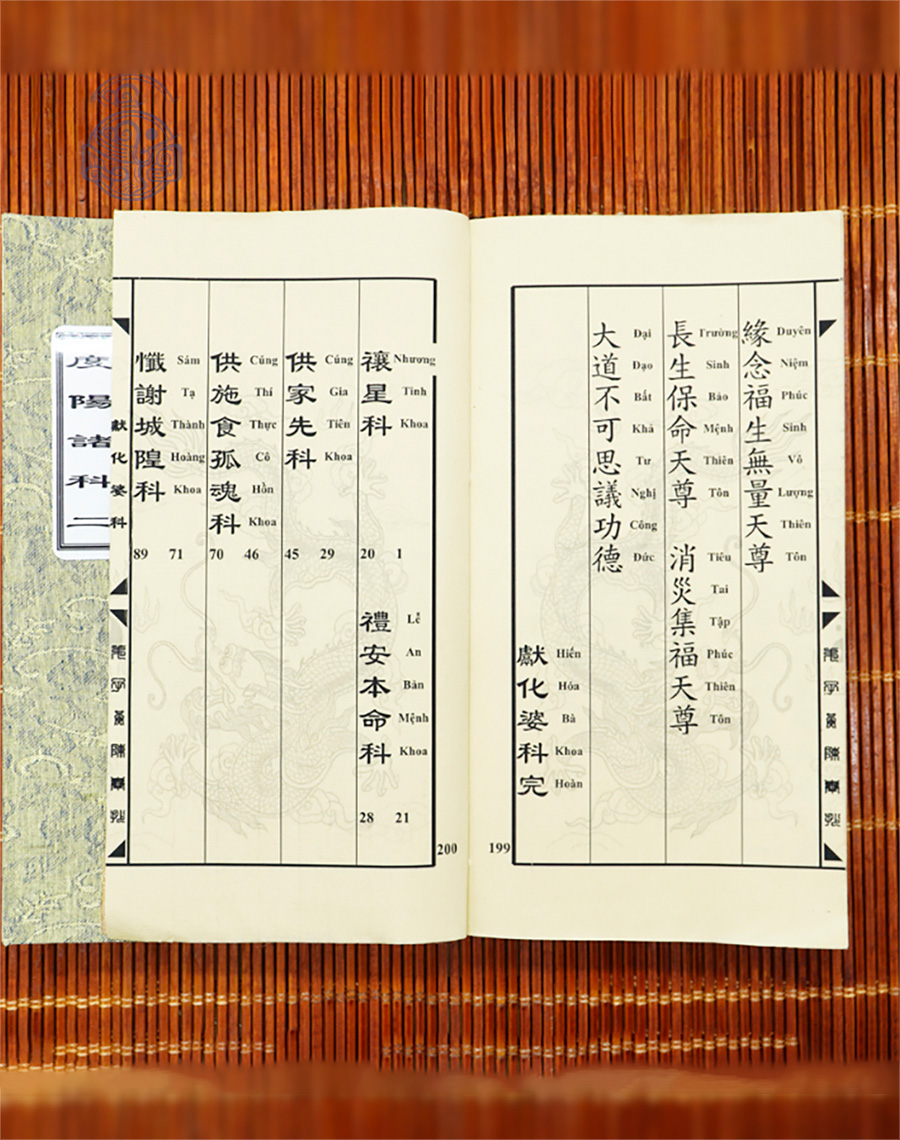 緣念福生無量天尊
Duyên Niệm Phúc Sinh Vô Lượng Thiên Tôn
長生保命天尊 消災集福天尊
Trường Sinh Bảo Mệnh Thiên Tôn Tiêu Tai Tập Phúc Thiên Tôn
大道不可思議功德
Đại Đạo Bất Khả Tư Nghị Công Đức
獻化婆科完
Hiến Hóa Bà Khoa Hoàn
199
禳星科
Nhương Tinh Khoa
20 1
禮安本命科
Lễ An Bản Mệnh Khoa
28 21
供家先科
Cúng Gia Tiên Khoa
45 29
供施食孤魂科
Cúng Thí Thực Cô Hồn Khoa
70 46
懺謝城隍科
Sám Tạ Thành Hoàng Khoa
89 71
200
獻化婆科
度陽諸科二